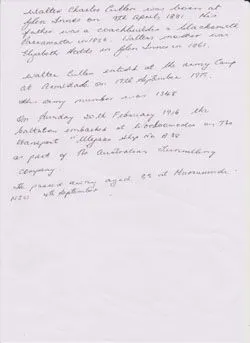 Walter Charles Cutler was born at
Glen Innes on 9th April 1881. His
father was a coachbuilder & blacksmith
Parramatta in 1856. Walters mother was
Elizabeth Hodds in Glen Innes in 1861.
Walter Cutler enlisted at the Army Camp
at Armidale on 17th September 1915.
His army number was 1348
On Sunday 20th February 1916 the
battalion embarked at Woolloomooloo on The
Transport "Ulysses Ship No A 38
as part of The Australian Tunnelling
company
He passed away aged at Murrurundi
NSW 4th September